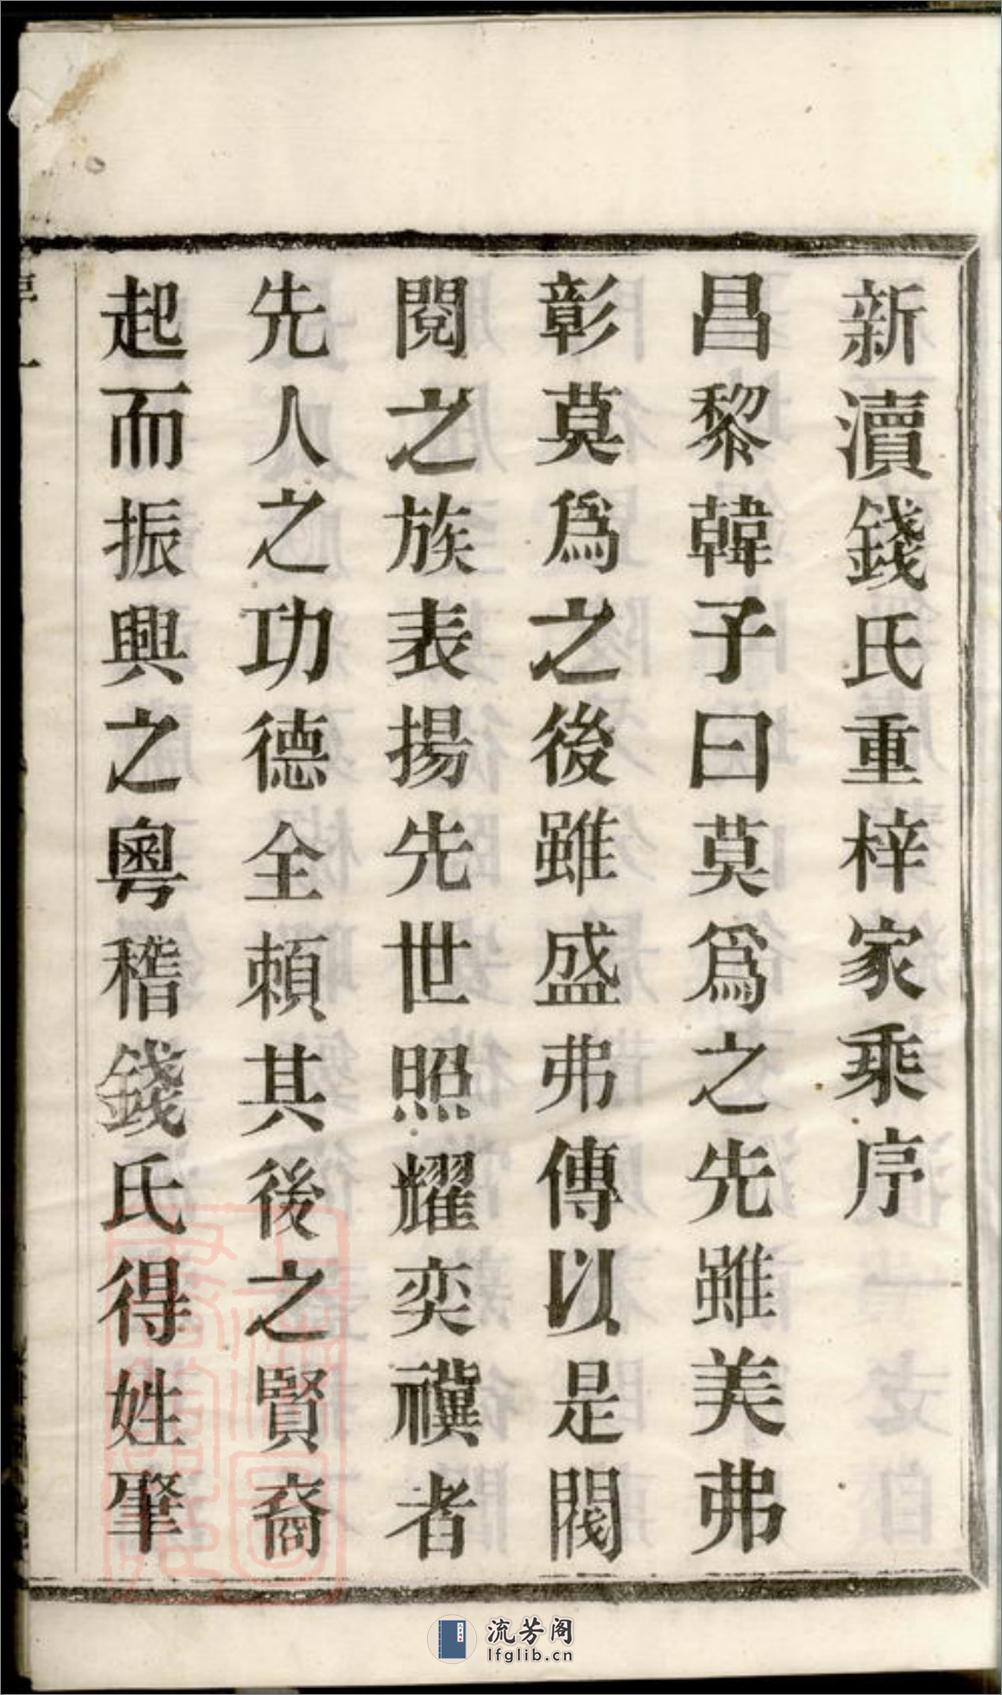 新瀆錢氏重梓家乘序
昌黎韓子曰莫爲之先雖美弗
彰莫爲之後雖盛弗傳以是閥
閱之族表揚先世照耀奕禩者
先人之功德全頼其後之賢裔
起而振興之粵稽錢氏得姓肇
流芳阁
lfglib.cn